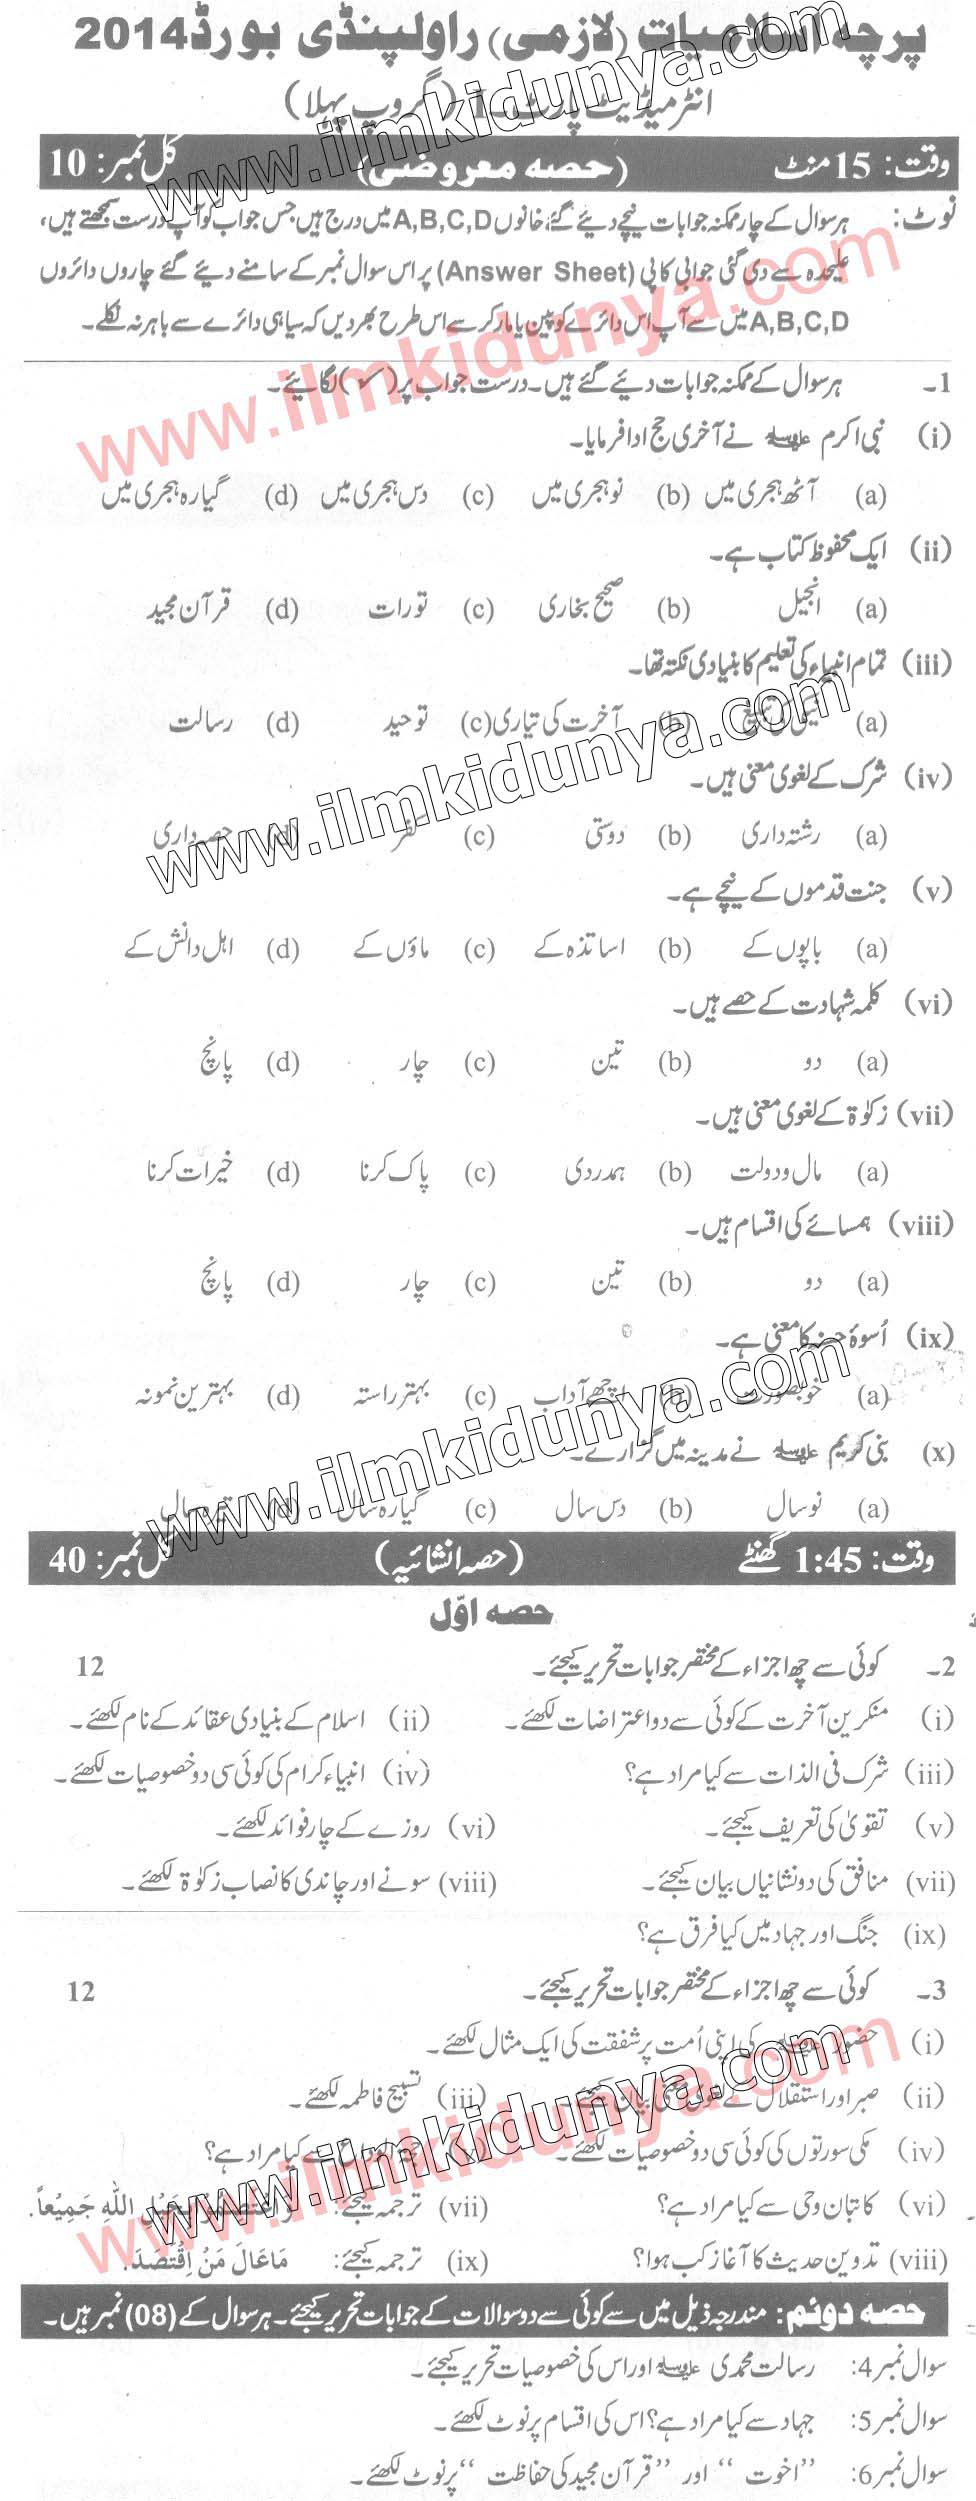 پرچہ اسلامیات (لازمی) راولپنڈی بورڈ 2014
انٹرمیڈیٹ پارٹ۔I (گروپ پہلا)
وقت: 15 منٹ (حصہ معروضی) کل نمبر: 10
نوٹ: ہر سوال کے چار ممکنہ جوابات نیچے دیئے گئے خانوں A,B,C,D میں درج ہیں جس جواب کو آپ درست سمجھتے ہیں،
علیحدہ سے دی گئی جوابی کاپی (Answer Sheet) پر اس سوال نمبر کے سامنے دیئے گئے چاروں دائروں
A,B,C,D میں سے آپ اس دائرے کو پین یا مارکر سے اس طرح بھر دیں کہ سیاہی دائرے سے باہر نہ نکلے۔
1۔ ہر سوال کے ممکنہ جوابات دیئے گئے ہیں۔ درست جواب پر (✓) لگائیے۔
(i) نبی اکرم ﷺ نے آخری حج ادا فرمایا۔
(a) آٹھ ہجری میں (b) نو ہجری میں (c) دس ہجری میں (d) گیارہ ہجری میں
(ii) ایک محفوظ کتاب ہے۔
(a) انجیل (b) صحیح بخاری (c) تورات (d) قرآن مجید
(iii) تمام انبیاء کی تعلیم کا بنیادی نکتہ تھا۔
(a) نیکی کی تبلیغ (b) آخرت کی تیاری (c) توحید (d) رسالت
(iv) شرک کے لغوی معنی ہیں۔
(a) رشتہ داری (b) دوستی (c) کفر (d) حصہ داری
(v) جنت قدموں کے نیچے ہے۔
(a) باپوں کے (b) اساتذہ کے (c) ماؤں کے (d) اہل دانش کے
(vi) کلمہ شہادت کے حصے ہیں۔
(a) دو (b) تین (c) چار (d) پانچ
(vii) زکوٰۃ کے لغوی معنی ہیں۔
(a) مال و دولت (b) ہمدردی (c) پاک کرنا (d) خیرات کرنا
(viii) ہمسائے کی اقسام ہیں۔
(a) دو (b) تین (c) چار (d) پانچ
(ix) اُسوۂ حسنہ کا معنی ہے۔
(a) خوبصورت (b) اچھے آداب (c) بہتر راستہ (d) بہترین نمونہ
(x) نبی کریم ﷺ نے مدینہ میں گزارے۔
(a) نو سال (b) دس سال (c) گیارہ سال (d) تیرہ سال
وقت: 1:45 گھنٹے (حصہ انشائیہ) کل نمبر: 40
حصہ اوّل
2۔ کوئی سے چھ اجزاء کے مختصر جوابات تحریر کیجئے۔ 12
(i) منکرین آخرت کے کوئی سے دو اعتراضات لکھئے۔ (ii) اسلام کے بنیادی عقائد کے نام لکھئے۔
(iii) شرک فی الذات سے کیا مراد ہے؟ (iv) انبیاء کرام کی کوئی سی دو خصوصیات لکھئے۔
(v) تقویٰ کی تعریف کیجئے۔ (vi) روزے کے چار فوائد لکھئے۔
(vii) منافق کی دو نشانیاں بیان کیجئے۔ (viii) سونے اور چاندی کا نصاب زکوٰۃ لکھئے۔
(ix) جنگ اور جہاد میں کیا فرق ہے؟
3۔ کوئی سے چھ اجزاء کے مختصر جوابات تحریر کیجئے۔ 12
(i) حضور ﷺ کی اپنی اُمت پر شفقت کی ایک مثال لکھئے۔
(ii) صبر اور استقلال کے لغوی معنی بیان کیجئے۔ (iii) تسبیح فاطمہ لکھئے۔
(iv) مکی سورتوں کی کوئی سی دو خصوصیات لکھئے۔ (v) حجۃ الوداع سے کیا مراد ہے؟
(vi) کاتبان وحی سے کیا مراد ہے؟ (vii) ترجمہ کیجئے: وَاعْتَصِمُوْا بِحَبْلِ اللّٰهِ جَمِيْعاً.
(viii) تدوین حدیث کا آغاز کب ہوا؟ (ix) ترجمہ کیجئے: مَاعَالَ مَنُ اِقْتَصَدَ.
حصہ دوئم: مندرجہ ذیل میں سے کوئی سے دو سوالات کے جوابات تحریر کیجئے۔ ہر سوال کے (08) نمبر ہیں۔
سوال نمبر 4: رسالت محمدی ﷺ اور اس کی خصوصیات تحریر کیجئے۔
سوال نمبر 5: جہاد سے کیا مراد ہے؟ اس کی اقسام پر نوٹ لکھئے۔
سوال نمبر 6: ”اخوت“ اور ”قرآن مجید کی حفاظت“ پر نوٹ لکھئے۔
www.ilmkidunya.com
www.ilmkidunya.com
www.ilmkidunya.com
www.ilmkidunya.com
www.ilmkidunya.com
www.ilmkidunya.com